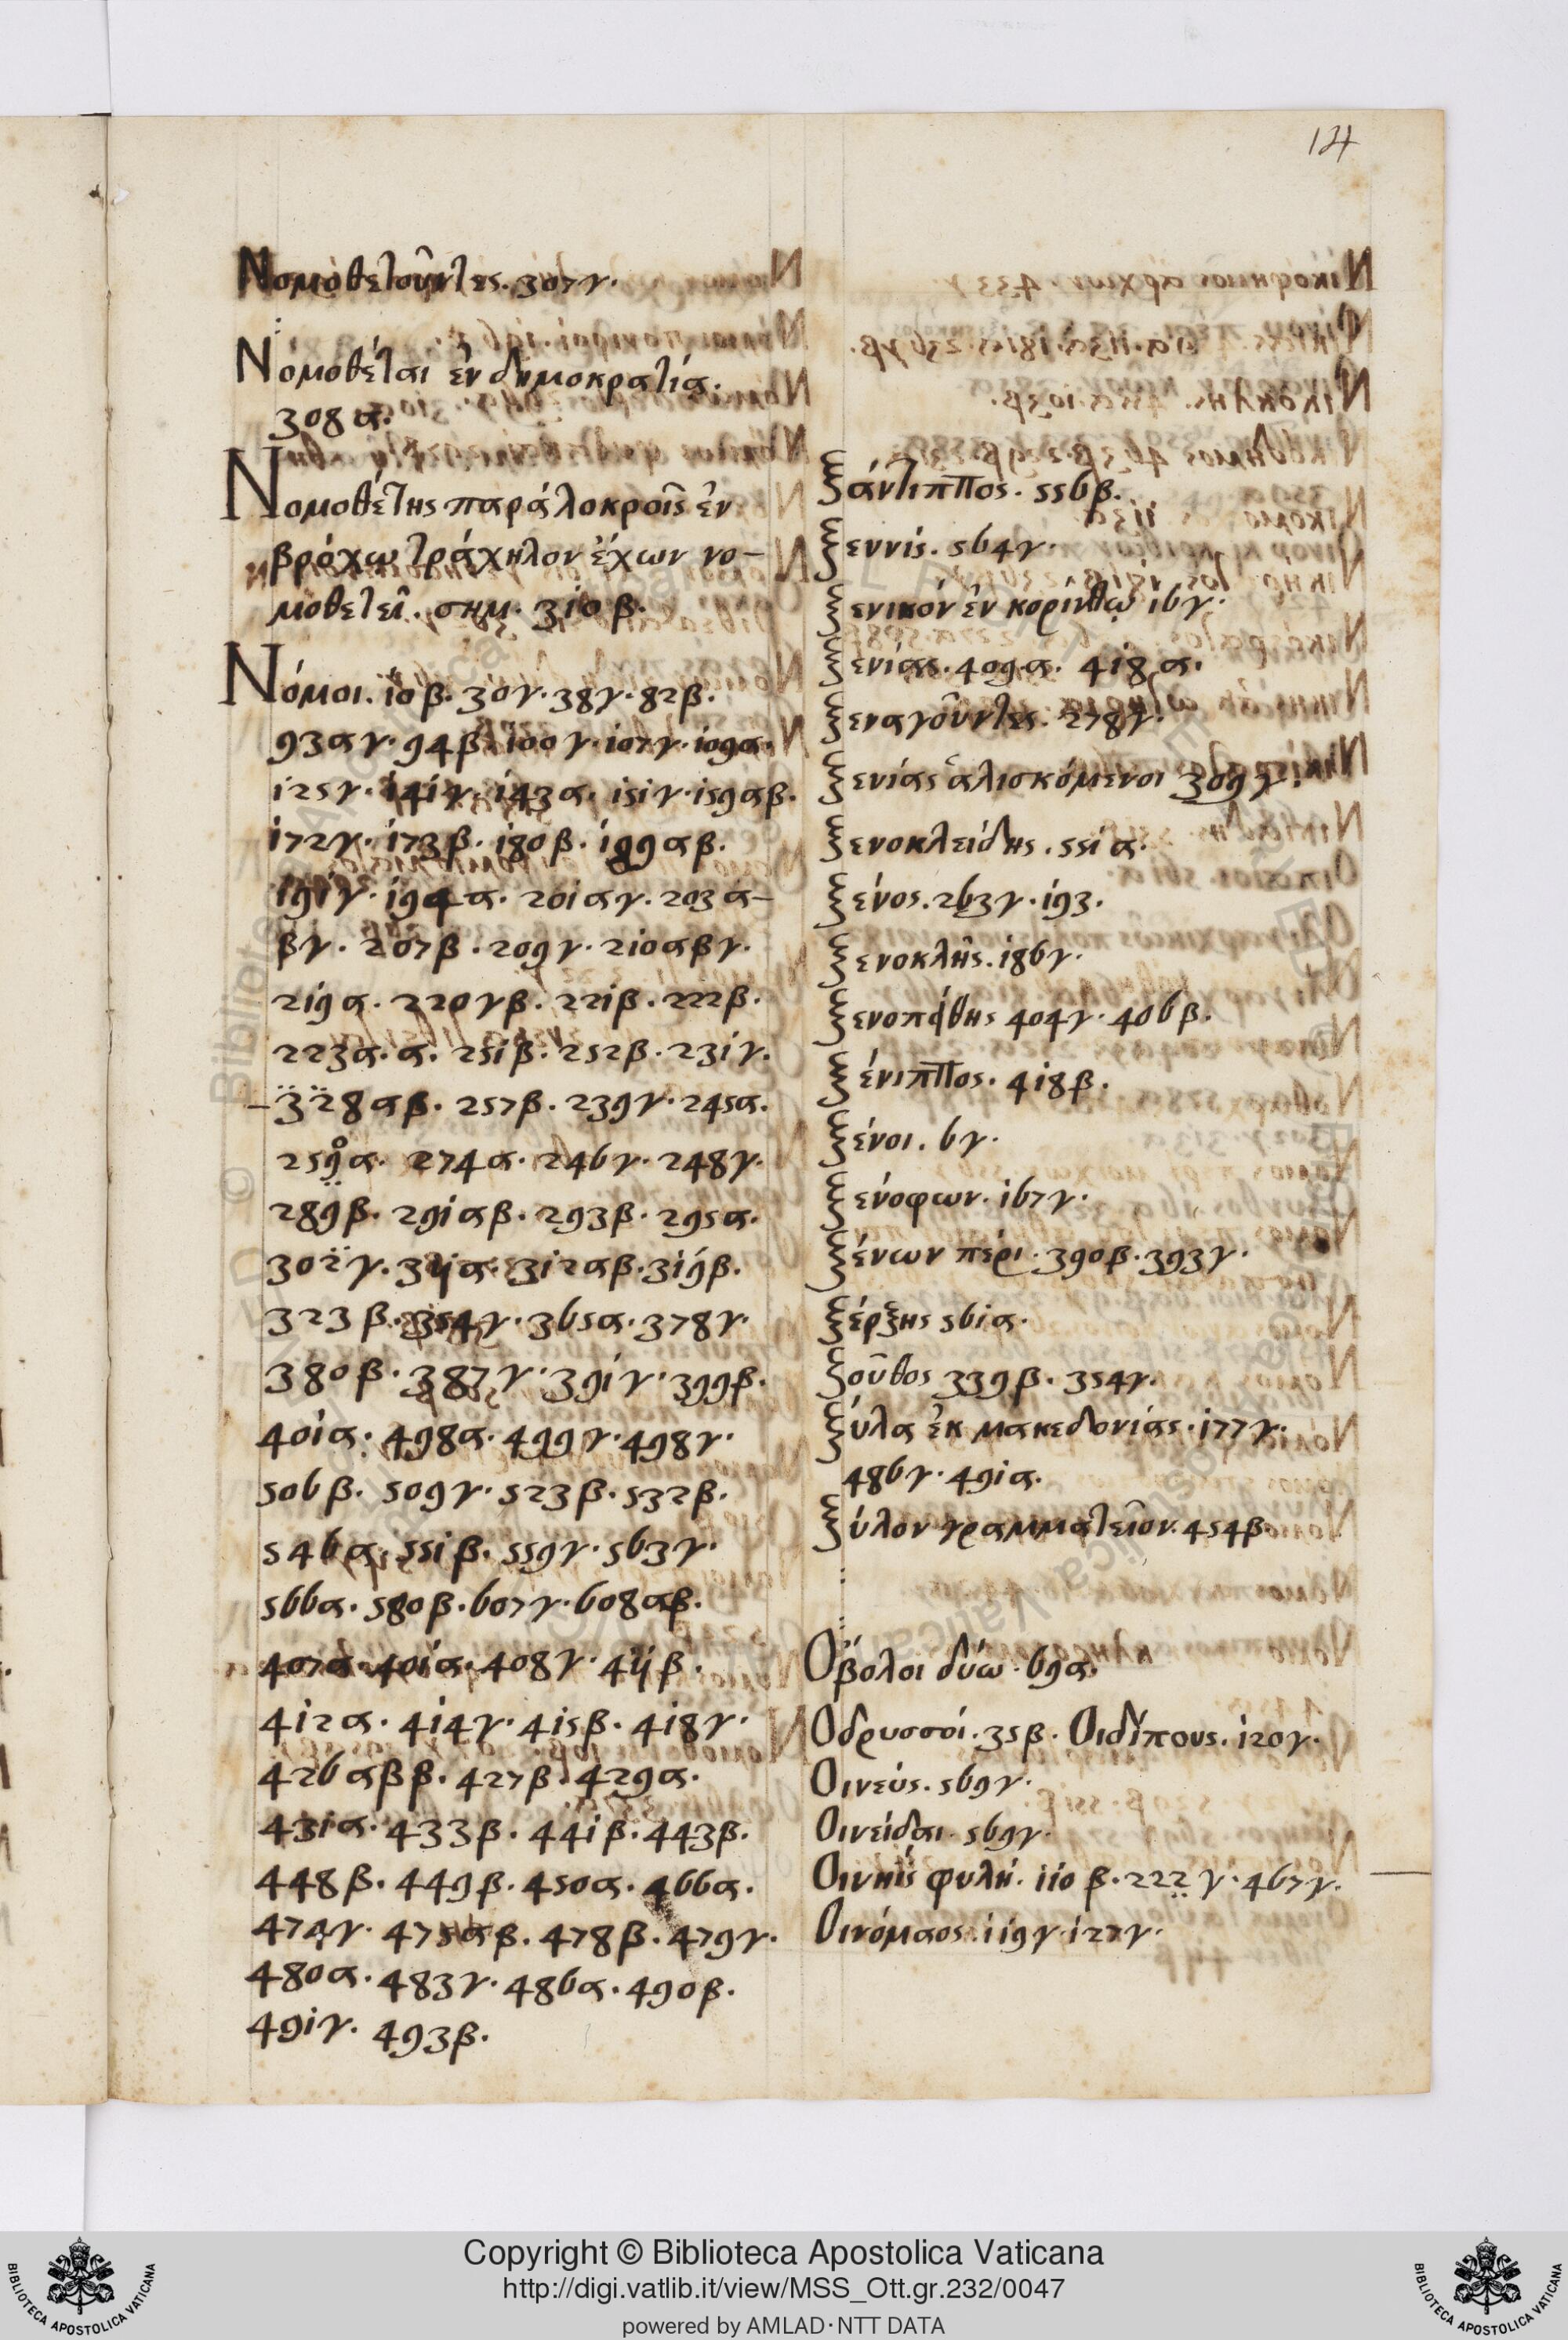 124
Νομοθετοῦντες. 307γ.
Νομοθέται ἐν δημοκρατίᾳ.
308α.
Νομοθέτης παρά λοκροῖς ἐν
βρόχῳ τράχηλον ἔχων νο-
μοθετεῖ. σημ. 310β.
Νόμοι. 10β. 30γ. 38γ. 82β.
93αγ. 94β. 100γ. 107γ. 109α.
125γ. 141γ. 143α. 151γ. 159αβ.
172γ. 173β. 180β. 199αβ.
191γ. 194α. 201αγ. 203α-
βγ. 207β. 209γ. 210αβγ.
219α. 220γβ. 221β. 222β.
223α.α. 251β. 252β. 231γ.
328αβ. 257β. 239γ. 245α.
259α. 274α. 246γ. 248γ.
289β. 291αβ. 293β. 295α.
302γ. 311α. 312αβ. 319β.
323β. 354γ. 365α. 378γ.
380β. 387γ. 391γ. 399β.
401α. 498α. 499γ. 498γ.
506β. 509γ. 523β. 532β.
546α. 551β. 559γ. 563γ.
566α. 580β. 607γ. 608αβ.
407α. 401α. 408γ. 411β.
412α. 414γ. 415β. 418γ.
426αββ. 427β. 429α.
431α. 433β. 441β. 443β.
448β. 449β. 450α. 466α.
474γ. 475αβ. 478β. 479γ.
480α. 483γ. 486α. 490β.
491γ. 493β.
Ξάντιππος. 556β.
Ξεννίς. 564γ.
Ξενικόν ἐν κορίνθῳ 16γ.
Ξενίας. 409.α. 418α.
Ξεναγοῦντες. 278γ.
Ξενίας ἁλισκόμενοι 309γ.
Ξενοκλείδης. 551α.
Ξένος. 263γ. 193.
Ξενοκλῆς. 186γ.
Ξενοπείθης 404γ. 406β.
Ξένιππος. 418β.
Ξένοι. 6γ.
Ξενόφων. 167γ.
Ξένων πέρι. 390β. 393γ.
Ξέρξης 561α.
Ξοῦθος 339β. 354γ.
Ξύλα ἐκ μακεδονίας. 177γ.
486γ. 491α.
Ξύλον γραμματεῖον. 454β
Ὀβολοι δύω. 69α.
Οδρυσσοί. 35β. Οιδίπους. 120γ.
Οινεύς. 569γ.
Οινείδαι. 569γ.
Οινηΐς φυλή. 110β. 222γ. 467γ.
Οινόμαος. 119γ. 127γ.
Copyright © Biblioteca Apostolica Vaticana
http://digi.vatlib.it/view/MSS_Ott.gr.232/0047
powered by AMLAD·NTT DATA
BIBLIOTECA APOSTOLICA VATICANA
BIBLIOTECA APOSTOLICA VATICANA